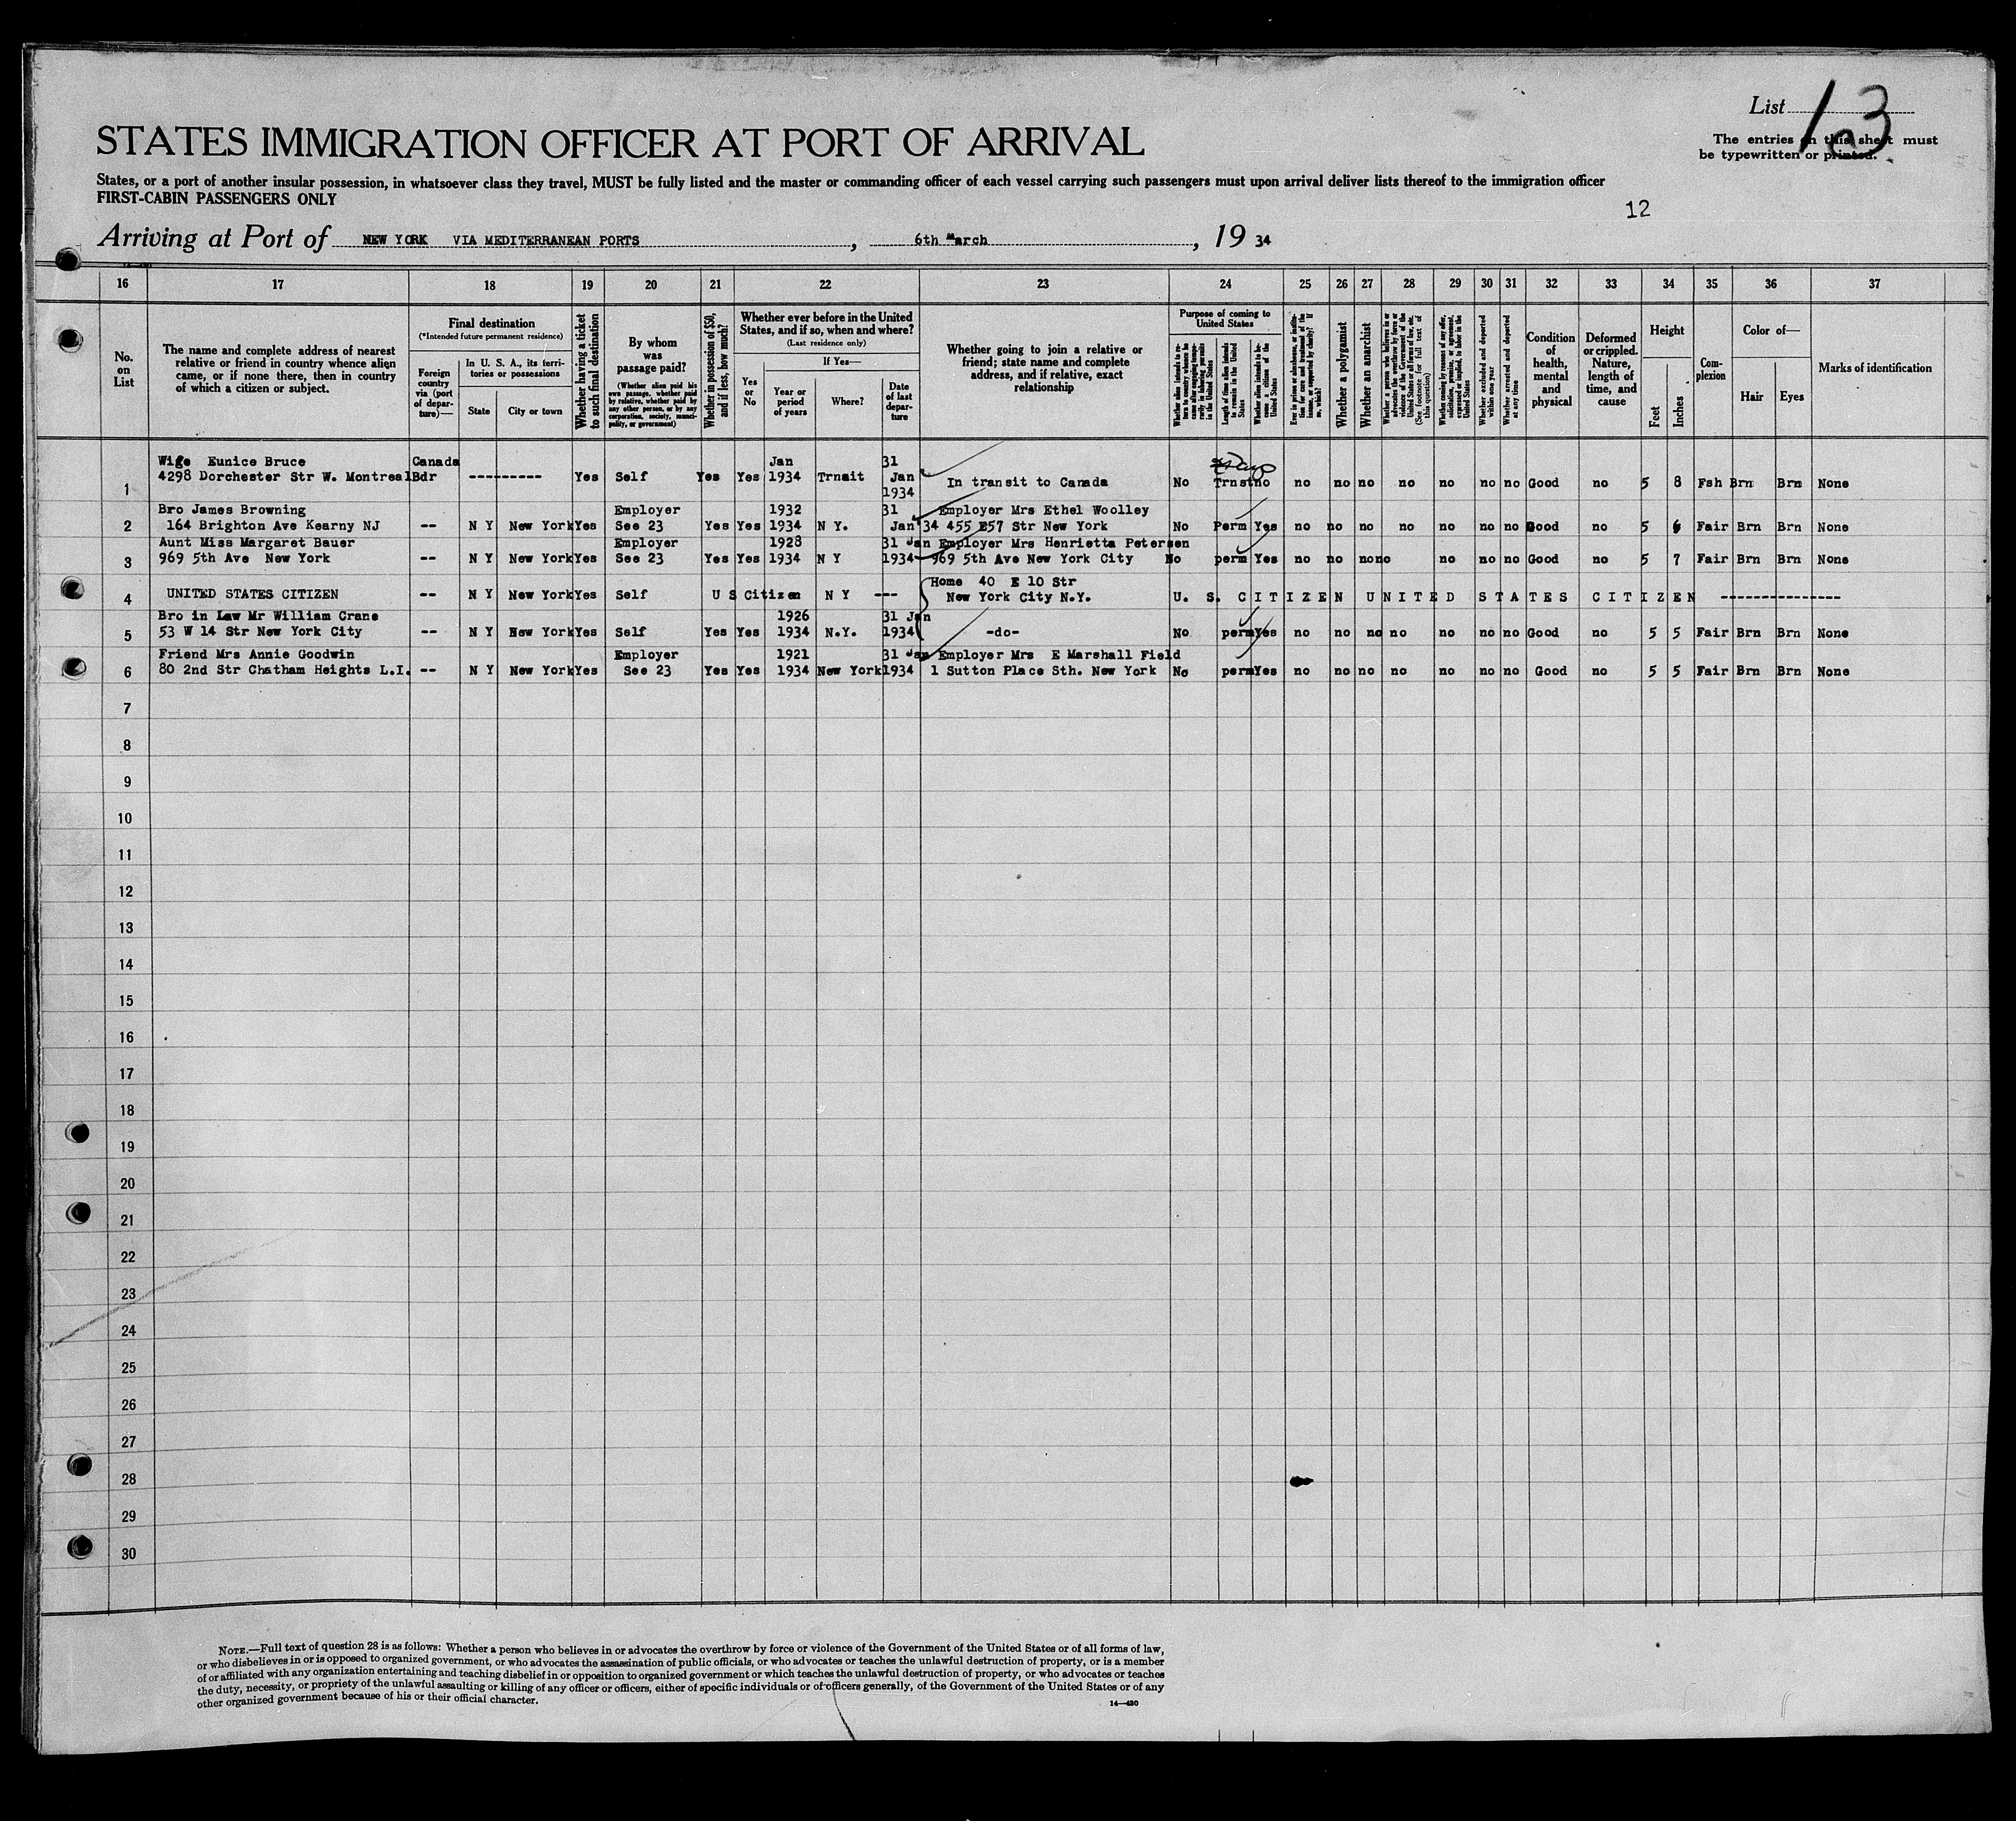 List 13
STATES IMMIGRATION OFFICER AT PORT OF ARRIVAL
The entries on this sheet must
be typewritten or printed.
States, or a port of another insular possession, in whatsoever class they travel, MUST be fully listed and the master or commanding officer of each vessel carrying such passengers must upon arrival deliver lists thereof to the immigration officer
FIRST-CABIN PASSENGERS ONLY
12
Arriving at Port of NEW YORK VIA MEDITERRANEAN PORTS, 6th March, 19 34
16 17 18 19 20 21 22 23 24 25 26 27 28 29 30 31 32 33 34 35 36 37
No. on List
The name and complete address of nearest
relative or friend in country whence alien
came, or if none there, then in country
of which a citizen or subject.
Final destination
(*Intended future permanent residence)
Foreign country via (port of departure)—
In U. S. A., its territories or possessions
State
City or town
Whether having a ticket to such final destination
By whom was passage paid?
(Whether alien paid his own passage, whether paid by relative, whether paid by any other person, or by any corporation, society, municipality, or government)
Whether in possession of $50, and if less, how much?
Whether ever before in the United
States, and if so, when and where?
(Last residence only)
Yes or No
If Yes—
Year or period of years
Where?
Date of last departure
Whether going to join a relative or
friend; state name and complete
address, and if relative, exact
relationship
Purpose of coming to United States
Length of time alien intends to remain in the United States
Whether alien intends to become a citizen of the United States
Whether a polygamist
Whether an anarchist
(See footnote for full text of this question)
Whether excluded and deported within one year
Whether arrested and deported at any time
Condition of health, mental and physical
Deformed or crippled. Nature, length of time, and cause
Height
Feet
Inches
Complexion
Color of—
Hair
Eyes
Marks of identification
Wife Eunice Bruce Canada Jan 31
1 4298 Dorchester Str W. Montreal Bdr --------- Yes Self Yes Yes 1934 Trnait Jan 1934 In transit to Canada No Trnst no no no no no no no no Good no 5 8 Fsh Brn Brn None
Bro James Browning Employer 1932 31 Employer Mrs Ethel Woolley
2 164 Brighton Ave Kearny NJ -- N Y New York Yes See 23 Yes Yes 1934 N Y. Jan 34 455 E57 Str New York No Perm Yes no no no no no no no Good no 5 6 Fair Brn Brn None
Aunt Miss Margaret Bauer Employer 1928 31 Jan Employer Mrs Henrietta Petersen
3 969 5th Ave New York -- N Y New York Yes See 23 Yes Yes 1934 N Y 1934 969 5th Ave New York City No perm Yes no no no no no no no Good no 5 7 Fair Brn Brn None
Home 40 E 10 Str
4 UNITED STATES CITIZEN -- N Y New York Yes Self U S Citizen N Y --- New York City N.Y. U. S. CITIZEN UNITED STATES CITIZEN ---------------
Bro in Law Mr William Crane 1926 31 Jan
5 53 W 14 Str New York City -- N Y New York Yes Self Yes Yes 1934 N.Y. 1934 -do- No perm Yes no no no no no no no Good no 5 5 Fair Brn Brn None
Friend Mrs Annie Goodwin Employer 1921 31 Jan Employer Mrs E Marshall Field
6 80 2nd Str Chatham Heights L.I. -- N Y New York Yes See 23 Yes Yes 1934 New York 1934 1 Sutton Place Sth. New York No perm Yes no no no no no no no Good no 5 5 Fair Brn Brn None
7
8
9
10
11
12
13
14
15
16
17
18
19
20
21
22
23
24
25
26
27
28
29
30
NOTE.—Full text of question 28 is as follows: Whether a person who believes in or advocates the overthrow by force or violence of the Government of the United States or of all forms of law,
or who disbelieves in or is opposed to organized government, or who advocates the assassination of public officials, or who advocates or teaches the unlawful destruction of property, or is a member
of or affiliated with any organization entertaining and teaching disbelief in or opposition to organized government or which teaches the unlawful destruction of property, or who advocates or teaches
the duty, necessity, or propriety of the unlawful assaulting or killing of any officer or officers, either of specific individuals or of officers generally, of the Government of the United States or of any
other organized government because of his or their official character.
14—430